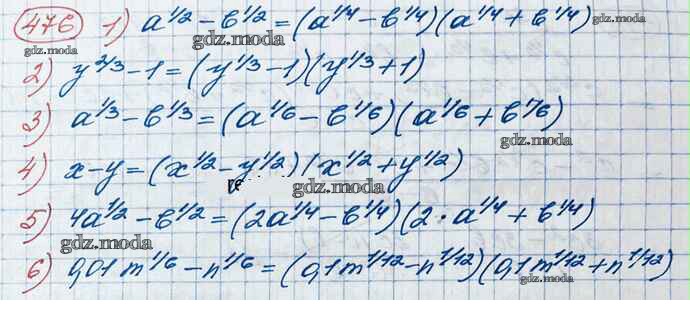 476 1) a^1/2 - b^1/2 = (a^1/4 - b^1/4)(a^1/4 + b^1/4)
gdz.moda gdz.moda
gdz.moda
2) y^2/3 - 1 = (y^1/3 - 1)(y^1/3 + 1)
gdz.moda
3) a^1/3 - b^1/3 = (a^1/6 - b^1/6)(a^1/6 + b^1/6)
gdz.moda
gdz.moda
4) x - y = (x^1/2 - y^1/2)(x^1/2 + y^1/2)
gdz.moda
5) 4a^1/2 - b^1/2 = (2a^1/4 - b^1/4)(2·a^1/4 + b^1/4)
gdz.moda
gdz.moda
6) 0,01m^1/6 - n^1/6 = (0,1m^1/12 - n^1/12)(0,1m^1/12 + n^1/12)
gdz.moda
gdz.moda